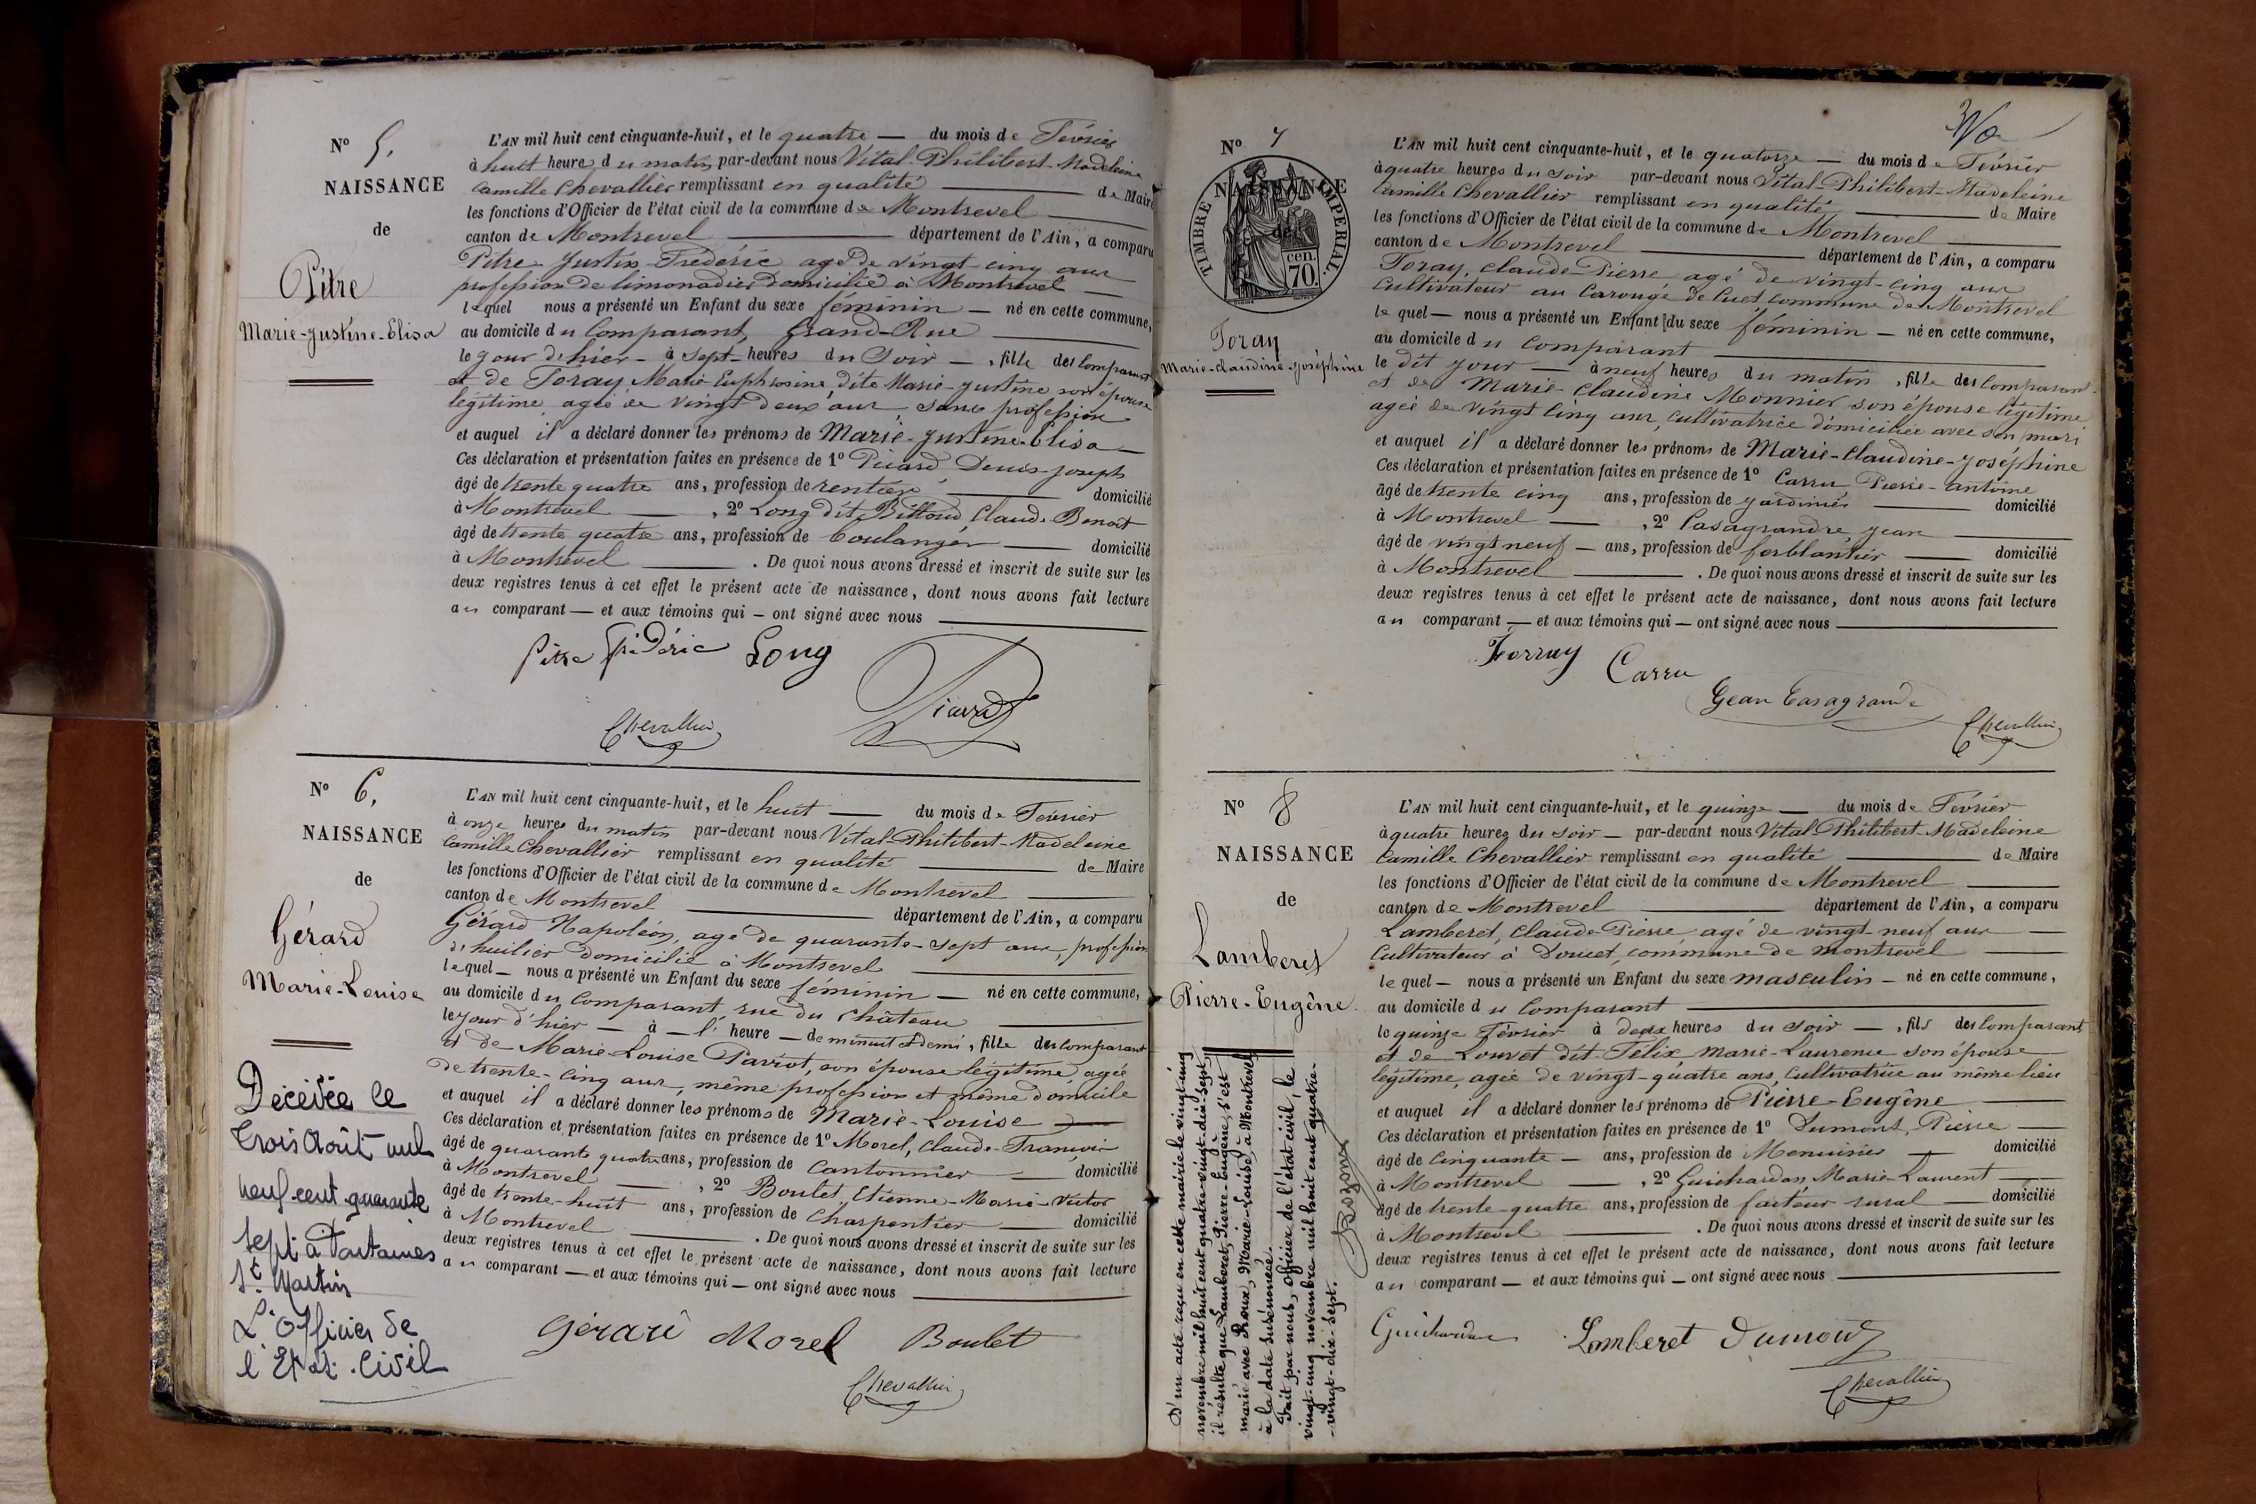 N° 5.
NAISSANCE
de
Pitre
Marie-Justine-Elisa
L'AN mil huit cent cinquante-huit, et le quatre — du mois de Février
à huit heures du matin par-devant nous Vital-Philibert-Madeleine
Camille Chevallier remplissant en qualité — de Maire
les fonctions d'Officier de l'état civil de la commune de Montrevel
canton de Montrevel — département de l'Ain, a comparu
Pitre Justin Frédéric agé de vingt cinq ans
profession de limonadier domicilié à Montrevel —
lequel nous a présenté un Enfant du sexe féminin — né en cette commune,
au domicile du Comparant, Grand-Rue
le jour d'hier — à sept heures du soir —, fille des Comparant
et de Foray, Marie Euphrosine dite Marie-Justine son épouse
légitime agée de vingt deux ans, sans profession
et auquel il a déclaré donner les prénoms de Marie-Justine-Elisa —
Ces déclaration et présentation faites en présence de 1° Picard Denis-Joseph
âgé de trente quatre ans, profession de rentier — domicilié
à Montrevel —, 2° Long dit Bittoud, Claude Benoit
âgé de trente quatre ans, profession de boulanger — domicilié
à Montrevel — . De quoi nous avons dressé et inscrit de suite sur les
deux registres tenus à cet effet le présent acte de naissance, dont nous avons fait lecture
au comparant — et aux témoins qui — ont signé avec nous
Pitre Frédéric Long
Picard
Chevallier
N° 6.
NAISSANCE
de
Gérard
Marie-Louise
Décédée le
trois Août mil
neuf cent quarante
sept à
St. Martin
L'Officier de
l'Etat-Civil
L'AN mil huit cent cinquante-huit, et le huit — du mois de Février
à onze heures du matin par-devant nous Vital-Philibert-Madeleine
Camille Chevallier remplissant en qualité — de Maire
les fonctions d'Officier de l'état civil de la commune de Montrevel
canton de Montrevel — département de l'Ain, a comparu
Gérard Napoléon, agé de quarante-sept ans, profession
d'huilier domicilié à Montrevel
lequel — nous a présenté un Enfant du sexe féminin — né en cette commune,
au domicile du Comparant, rue du Château
le jour d'hier — à — l' heure — de minuit et demi, fille des Comparant
et de Marie-Louise Pariot, son épouse légitime, agée
de trente-cinq ans, même profession et même domicile
et auquel il a déclaré donner les prénoms de Marie-Louise
Ces déclaration et présentation faites en présence de 1° Morel, Claude-François
âgé de quarante quatre ans, profession de Cantonnier — domicilié
à Montrevel —, 2° Boulet, Etienne-Marie-Victor
âgé de trente-huit ans, profession de Charpentier — domicilié
à Montrevel — . De quoi nous avons dressé et inscrit de suite sur les
deux registres tenus à cet effet le présent acte de naissance, dont nous avons fait lecture
au comparant — et aux témoins qui — ont signé avec nous
Gerard Morel Boulet
Chevallier
N° 7
NAISSANCE
de
TIMBRE IMPERIAL.
cen.
70.
Foray
Marie-Claudine-Joséphine
L'AN mil huit cent cinquante-huit, et le quatorze — du mois de Février
à quatre heures du soir par-devant nous Vital-Philibert-Madeleine
Camille Chevallier remplissant en qualité — de Maire
les fonctions d'Officier de l'état civil de la commune de Montrevel
canton de Montrevel — département de l'Ain, a comparu
Foray, Claude-Pierre, agé de vingt-cinq ans
Cultivateur au Carouge de Cuet Commune de Montrevel
lequel — nous a présenté un Enfant du sexe féminin — né en cette commune,
au domicile du Comparant
le dit jour — à neuf heures du matin, fille des Comparant
et de Marie Claudine Monnier son épouse légitime
agée de vingt cinq ans, Cultivatrice domiciliée avec son mari
et auquel il a déclaré donner les prénoms de Marie-Claudine-Joséphine
Ces déclaration et présentation faites en présence de 1° Carru Pierre-Antoine
âgé de trente cinq ans, profession de jardinier — domicilié
à Montrevel —, 2° Casagrandre, Jean
âgé de vingt neuf — ans, profession de ferblantier — domicilié
à Montrevel — . De quoi nous avons dressé et inscrit de suite sur les
deux registres tenus à cet effet le présent acte de naissance, dont nous avons fait lecture
au comparant — et aux témoins qui — ont signé avec nous
Forray Carru
Gean Casagrande
Chevallier
N° 8
NAISSANCE
de
Lamberet
Pierre-Eugène
D'un acte reçu en cette mairie le vingt-cinq
novembre mil huit cent quatre-vingt-dix-sept,
il résulte que Lamberet, Pierre-Eugène, s'est
marié avec Roux, Marie-Louise, à Montrevel
à la date susénoncée.
Fait par nous, officier de l'état civil, le
vingt-cinq novembre mil huit cent quatre-
-vingt-dix-sept.
L'AN mil huit cent cinquante-huit, et le quinze — du mois de Février
à quatre heures du soir — par-devant nous Vital-Philibert Madeleine
Camille Chevallier remplissant en qualité — de Maire
les fonctions d'Officier de l'état civil de la commune de Montrevel
canton de Montrevel — département de l'Ain, a comparu
Lamberet, Claude-Pierre agé de vingt-neuf ans —
Cultivateur à Doucet, commune de Montrevel
lequel — nous a présenté un Enfant du sexe masculin — né en cette commune,
au domicile du Comparant
le quinze Février à deux heures du soir —, fils des Comparant
et de Louvet dit Félix Marie-Laurence son épouse
légitime, agée de vingt-quatre ans, Cultivatrice au même lieu
et auquel il a déclaré donner les prénoms de Pierre-Eugène
Ces déclaration et présentation faites en présence de 1° Dumont, Pierre —
âgé de Cinquante — ans, profession de Menuisier — domicilié
à Montrevel —, 2° Guichardan, Marie-Laurent —
âgé de trente-quatre ans, profession de facteur rural — domicilié
à Montrevel — . De quoi nous avons dressé et inscrit de suite sur les
deux registres tenus à cet effet le présent acte de naissance, dont nous avons fait lecture
au comparant — et aux témoins qui — ont signé avec nous
Guichardan Lamberet Dumont
Chevallier